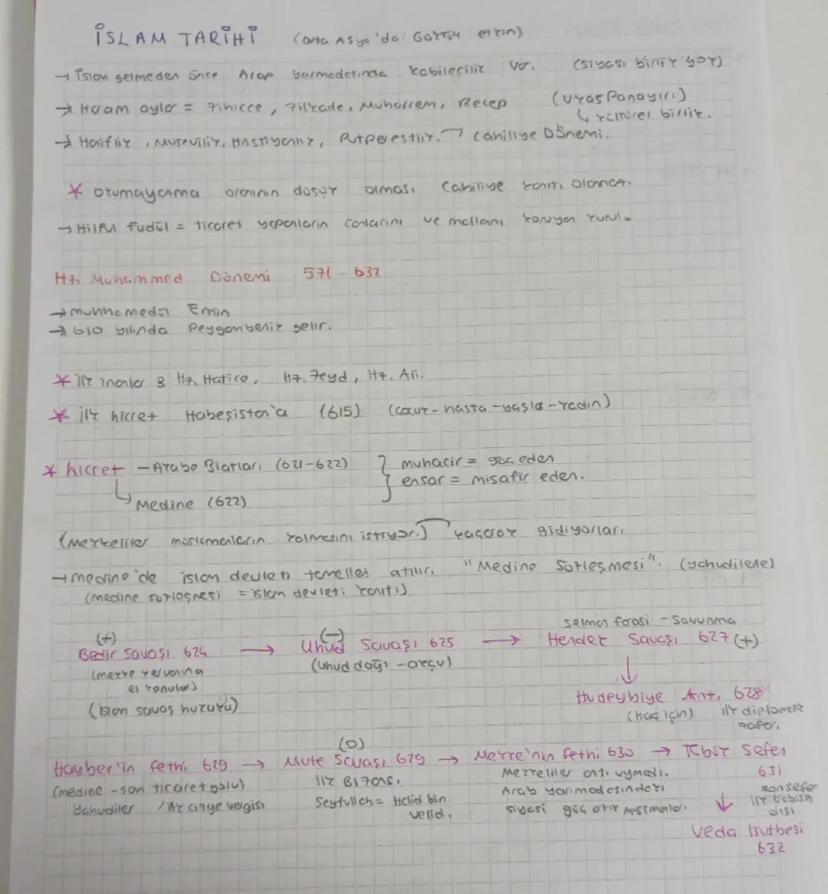 İSLAM TARİHİ (Orta Asya'da Göktürk etkin)
→ İslam gelmeden önce Arap yarımadasında kabilecilik var. (siyasi birlik yok)
→ Haram aylar = Zihicce, Zilkade, Muharrem, Recep (Ukaz Panayırı)
↳ kültürel birlik.
→ Haniflik, Musevilik, Hristiyanlık, Putperestlik. → Cahiliye Dönemi.
* Okumayazma oranının düşük olması Cahiliye kanıtı olamaz.
→ Hilful Fudûl = ticaret yapanların canlarını ve mallarını koruyan kurul.
Hz. Muhammed Dönemi 571 - 632
→ Muhammedül Emin
→ 610 yılında Peygamberlik gelir.
* ilk inanlar 3 Hz. Hatice, Hz. Zeyd, Hz. Ali.
* ilk hicret Habeşistan'a (615) (çocuk-hasta-yaşlı-kadın)
* hicret - Akabe Biatları (621-622) } muhacir = göç eden
ensar = misafir eden.
↳ Medine (622)
(Mekkeliler müslümanların kalmasını istiyor.) kaçarak gidiyorlar.
→ medine'de islam devleti temelleri atılır. "Medine Sözleşmesi". (yahudilerle)
(medine sözleşmesi = islam devleti kanıtı)
(+) (-) selman farisi - savunma
Bedir Savaşı 624 → Uhud Savaşı 625 → Hendek Savaşı 627 (+)
(mekke kervanına el konulur) (Uhud dağı - okçu) ↓
(İslam savaş hukuku) Hudeybiye Ant. 628
(Hac için) ilk diplomatik zafer.
(0)
Hayber'in fethi 629 → Mute Savaşı 629 → Mekke'nin fethi 630 → Tebük Seferi 631
(medine - şam ticaret yolu) ilk Bizans. Mekkeliler ant. uymadı. son sefer
Yahudiler / ilk cizye vergisi Seyfullah = Halid bin velid. Arab yarımadasındaki siyasi güç artık müslümanlar. ilk
↓
Veda Hutbesi
632